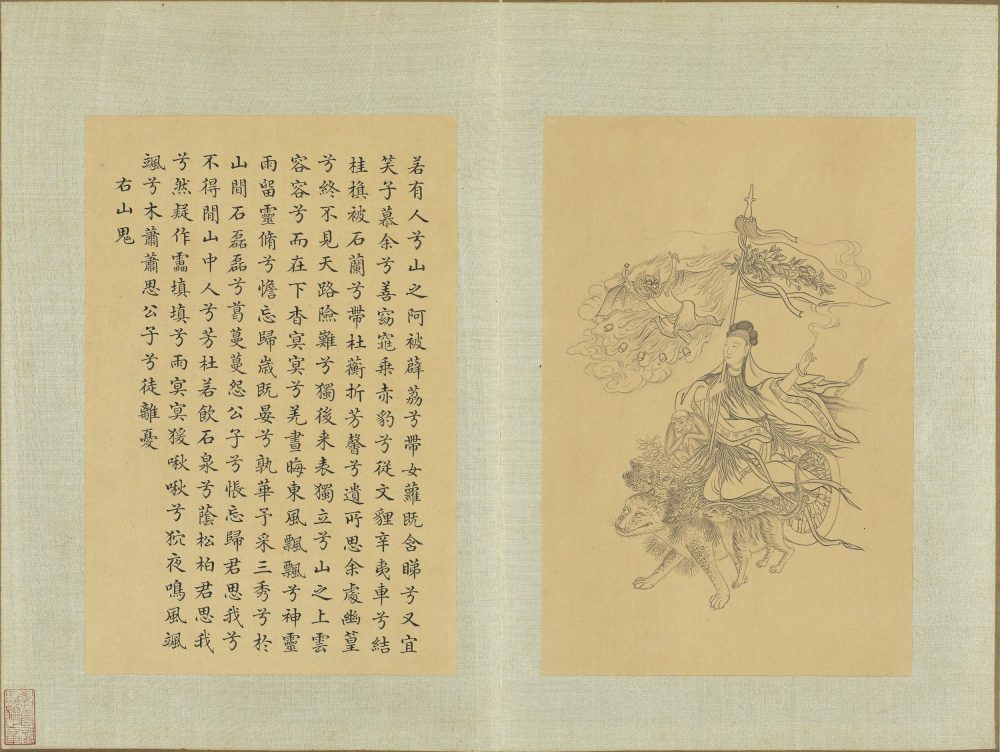 若有人兮山之阿被薜荔兮帶女蘿既含睇兮又宜
笑子慕余兮善窈窕乘赤豹兮從文貍辛夷車兮結
桂旗被石蘭兮帶杜蘅折芳馨兮遺所思余處幽篁
兮終不見天路險難兮獨後来表獨立兮山之上雲
容容兮而在下杳冥冥兮羌晝晦東風飄飄兮神靈
雨留靈脩兮憺忘歸歲既晏兮孰華予采三秀兮於
山間石磊磊兮葛蔓蔓怨公子兮悵忘歸君思我兮
不得閒山中人兮芳杜若飲石泉兮蔭松柏君思我
兮然疑作靁填填兮雨冥冥猨啾啾兮狖夜鳴風颯
颯兮木蕭蕭思公子兮徒離憂
右山鬼